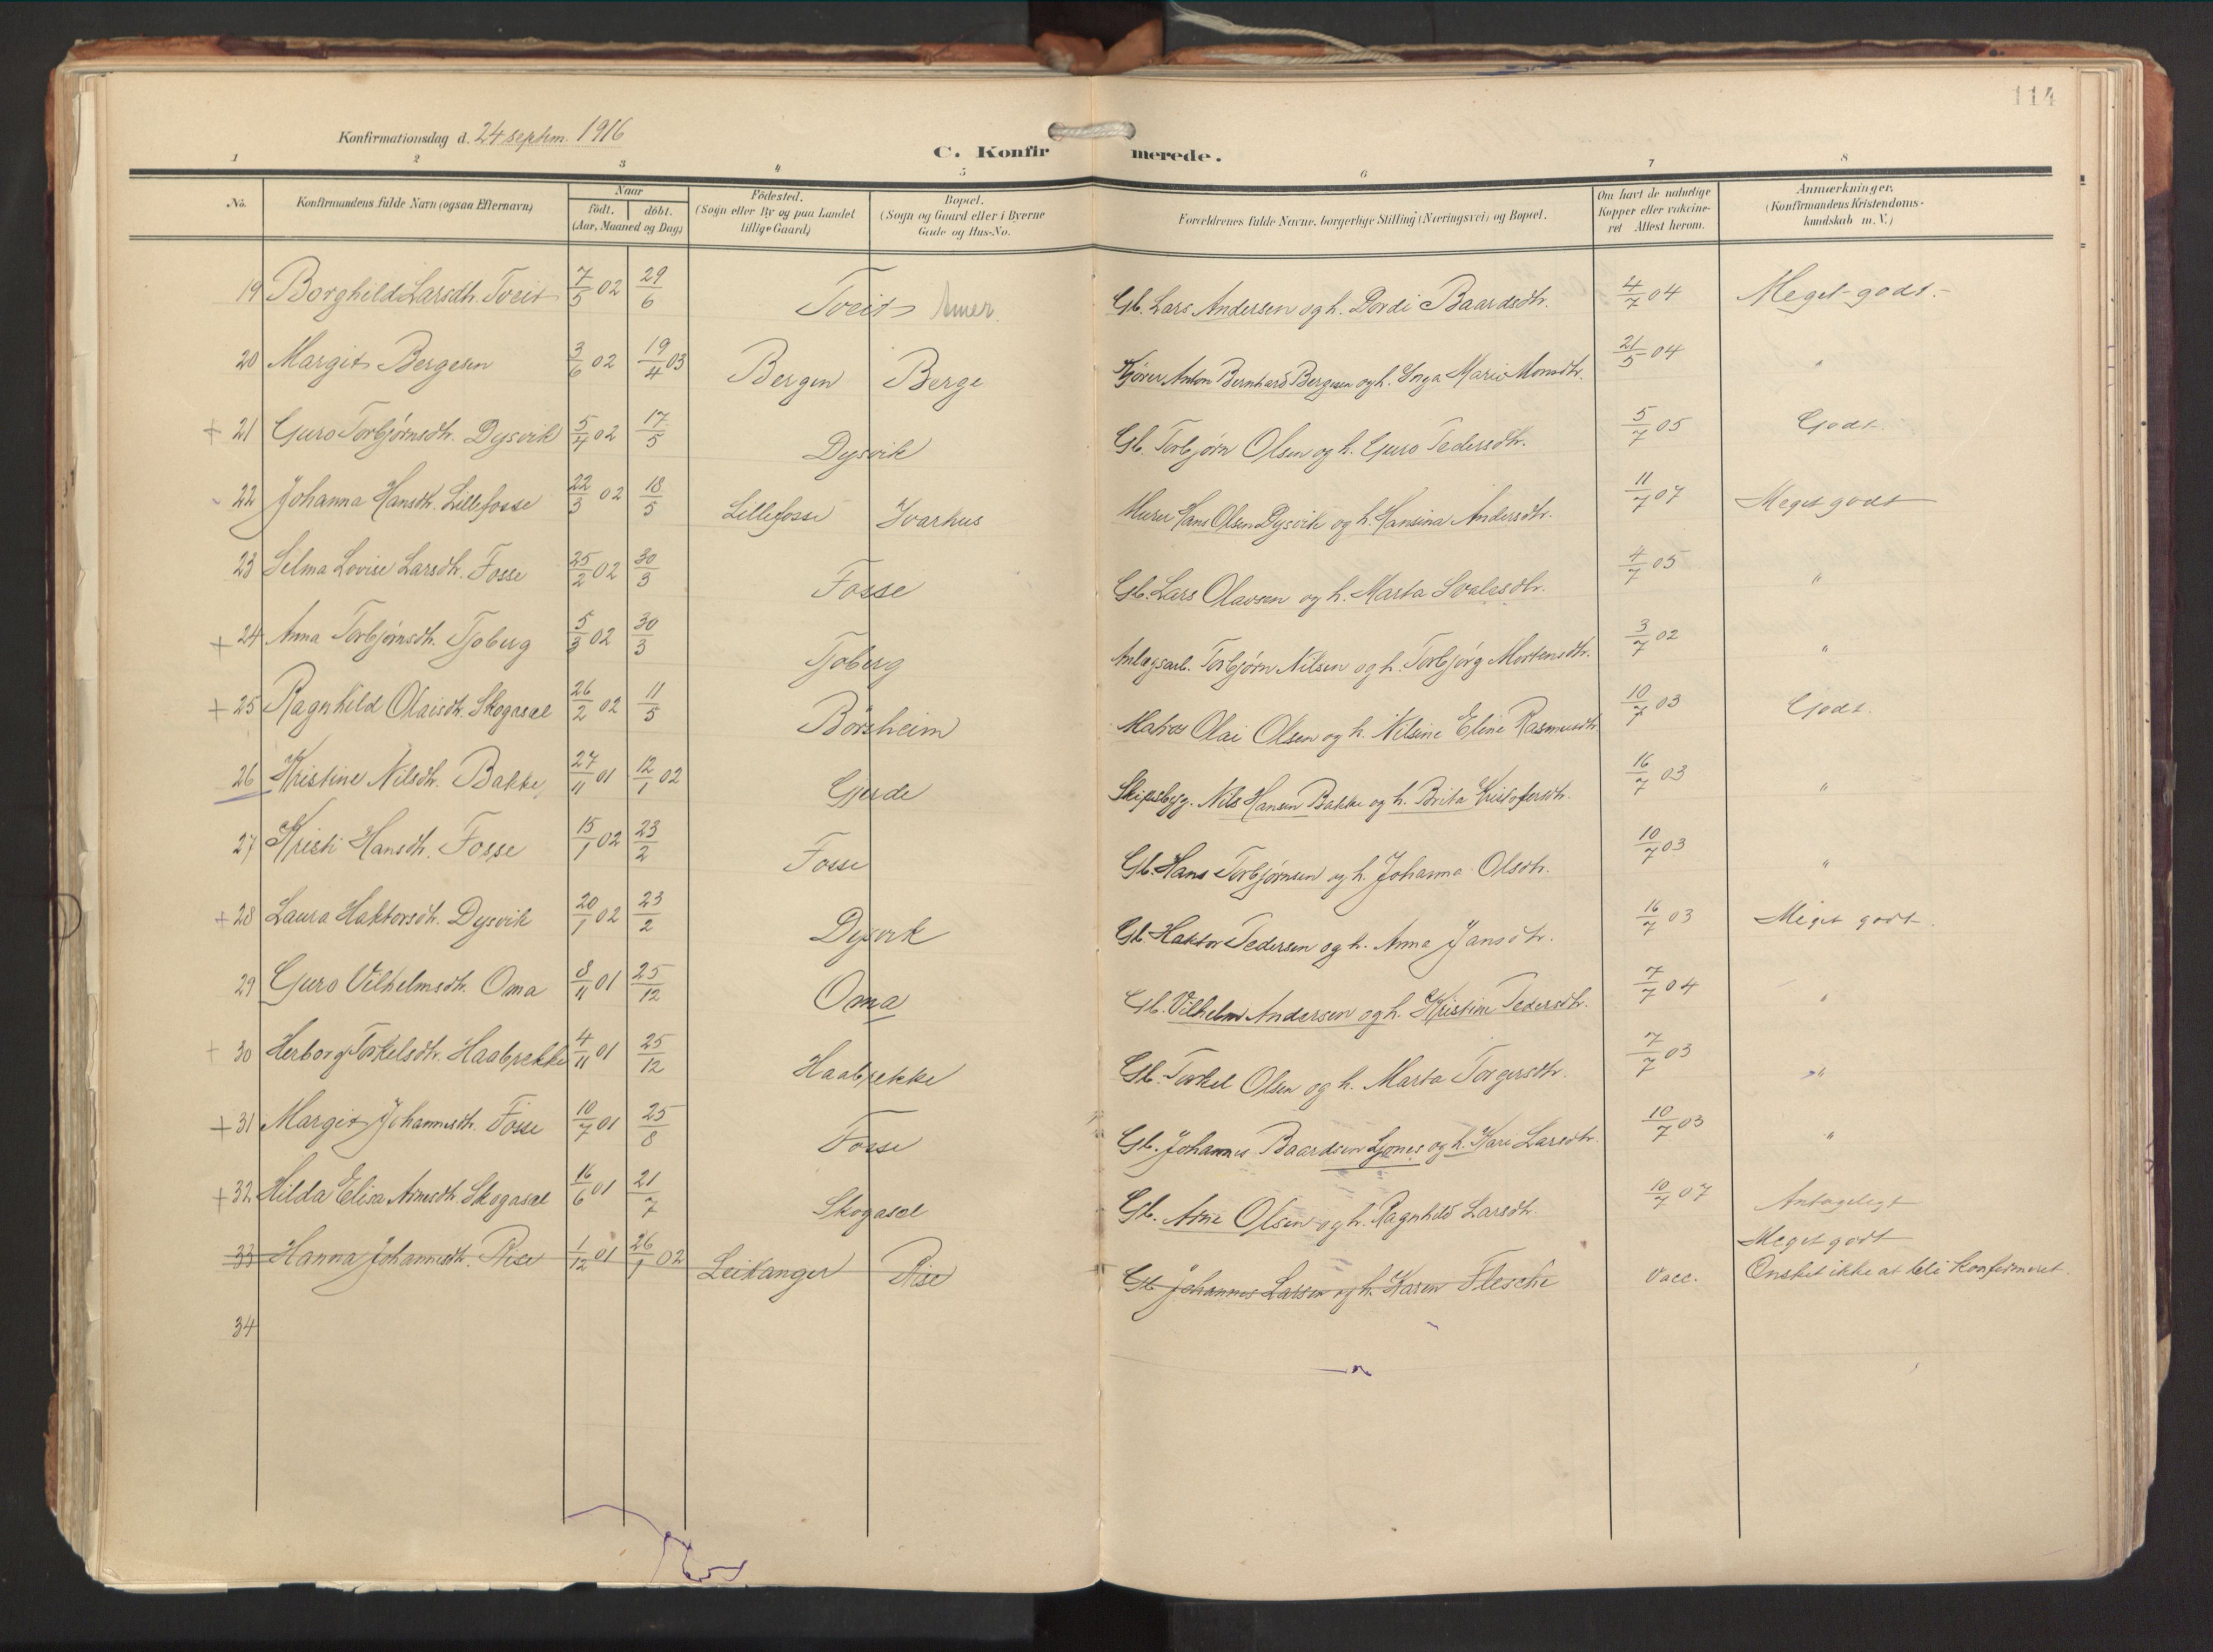 114
Konfirmationsdag d. 24 septem. 1916
C. Konfirmerede.
1 2 3 4 5 6 7 8
No. Konfirmandens fulde Navn (ogsaa Efternavn) Naar født. døbt. (Aar, Maaned og Dag) Fødested. (Sogn eller By og paa Landet tillige Gaard) Bopæl. (Sogn og Gaard eller i Byerne Gade og Hus-No. Forældrenes fulde Navne, borgerlige Stilling (Næringsvei) og Bopæl. Om havt de naturlige Kopper eller vakcineret Attest herom. Anmærkninger. (Konfirmandens Kristendomskundskab m. V.)
19 Borghild Larsdtr. Tveit 7/5 02 29/6 Tveit Gb. Lars Andersen og h. Dordi Baardsdtr. 4/7 04 Meget godt.
20 Margit Bergesen 3/6 02 19/4 03 Bergen Berge Kjører Anton Bernhard Bergesen og h. Inga Marie Monsdtr. 21/5 04 "
+ 21 Guro Torbjørnsdtr. Dysvik 5/4 02 17/5 Dysvik Gb. Torbjørn Olsen og h. Guro Pedersdtr. 5/7 05 Godt.
22 Johanna Hansdtr. Lillefosse 22/3 02 18/5 Lillefosse Ivarhus Murer Hans Olsen Dysvik og h. Hansina Andersdtr. 11/7 07 Meget godt
23 Selma Lovise Larsdtr. Fosse 25/2 02 30/3 Fosse Gb. Lars Olavsen og h. Marta Svalesdtr. 4/7 05 "
+ 24 Anna Torbjørnsdtr. Tjoberg 5/3 02 30/3 Tjoberg Anlægsarb. Torbjørn Nilsen og h. Torbjørg Mortensdtr. 3/7 02 "
+ 25 Ragnhild Olaisdtr. Skogasæl 26/2 02 11/5 Børsheim Matros Olai Olsen og h. Nilsine Eline Rasmusdtr. 10/7 03 Godt.
26 Kristine Nilsdtr. Bakke 27/11 01 12/1 02 Gjerde Skipsbyg. Nils Hansen Bakke og h. Brita Kristofersdtr. 16/7 03 "
27 Kristi Hansdtr. Fosse 15/1 02 23/2 Fosse Gb. Hans Torbjørnsen og h. Johanna Olsdtr. 10/7 03 "
+ 28 Laura Haktorsdtr. Dysvik 20/1 02 23/2 Dysvik Gb. Haktor Pedersen og h. Anna Jansdtr. 16/7 03 Meget godt.
29 Guro Vilhelmsdtr. Oma 8/11 01 25/12 Oma Gb. Vilhelm Andersen og h. Kristine Pedersdtr. 7/7 04 "
+ 30 Herborg Torkelsdtr. Haabrekke 4/11 01 25/12 Haabrekke Gb. Torkel Olsen og h. Marta Torgersdtr. 7/7 03 "
+ 31 Margit Johannesdtr. Fosse 10/7 01 25/8 Fosse Gb. Johannes Baardsen Ljones og h. Kari Larsdtr. 10/7 03 "
+ 32 Hilda Elisa Arnesdtr. Skogasæl 16/6 01 21/7 Skogasæl Gb. Arne Olsen og h. Ragnhild Larsdtr. 10/7 07 Antageligt
33 Hanna Johannesdtr. Rise 1/12 01 26/1 02 Leikanger Rise Gb Johannes Larsen og h. Karen Flesche Vacc. Meget godt
Ønsket ikke at bli konfirmeret.
34